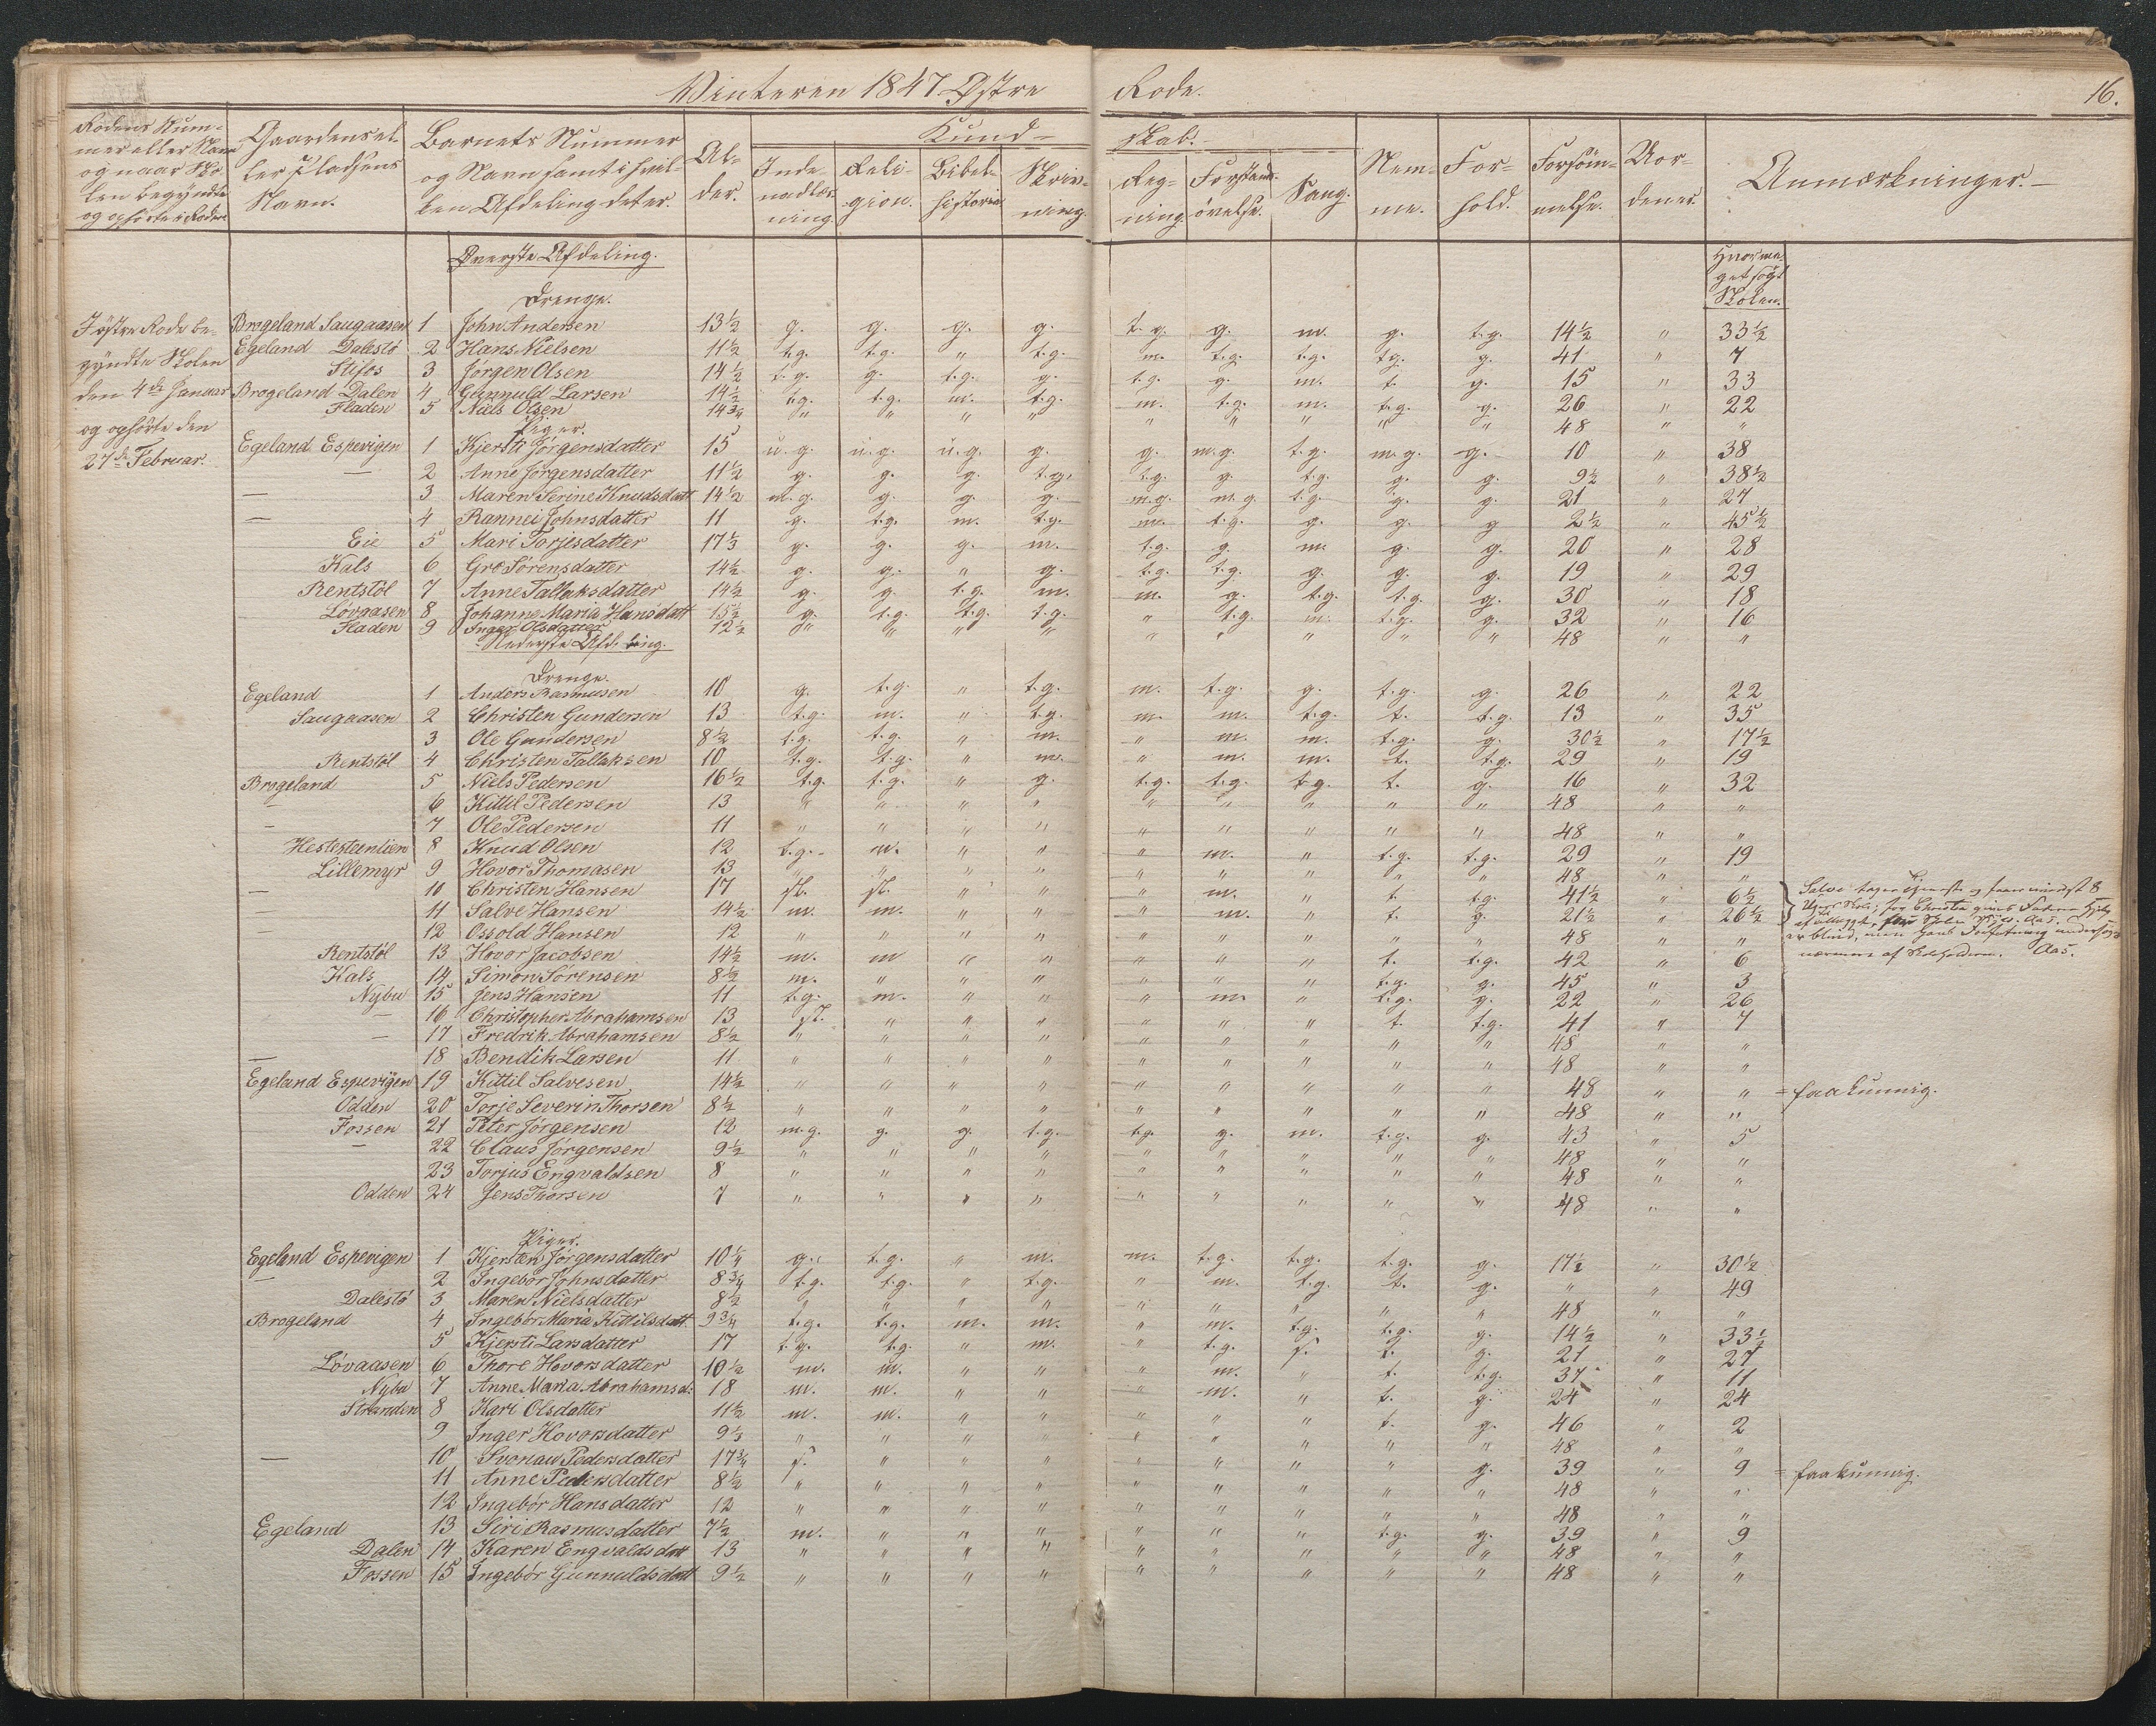 Vinteren 1847. Østre Rode. 16.
Rodens Nummer eller Navn og naar Skolen begyndte og ophørte i Roden
Gaardens eller Pladsens Navn.
Barnets Nummer og Navn samt i hvilken Afdeling det er.
Alder.
Kundskab.
Indenadlæsning.
Religion.
Bibelhistorie
Skrivning.
Regning.
Forstandsøvelse.
Sang.
Nemme.
Forhold.
Forsømmelse.
Uorden
Anmærkninger.
Øverste Afdeling.
Hvormeget søgt Skolen.
Drenge.
I østre Rode begyndte Skolen den 4de Januar og ophørte den 27de Februar.
Brøgeland Saugaasen 1 John Andersen 13½ g. g. g. g. t.g. g. m. g. t.g. 14½ " 33½
Egeland Dalestø 2 Hans Nielsen 11½ t.g. t.g. " t.g. m. t.g. t.g. t.g. g. 41 " 7
Slyfos 3 Jørgen Olsen 14½ t.g. g. t.g. g. t.g. g. m. t. g. 15 " 33
Brøgeland Dalen 4 Gunnuld Larsen 14½ t.g. t.g. m. t.g. m. t.g. m. t.g. g. 26 " 22
Fladen 5 Niels Olsen 14¾ " " " " " " " " " 48 " "
Piger.
Egeland Espevigen 1 Kjersti Jørgensdatter 15 u.g. u.g. u.g. g. g. m.g. t.g. m.g. g. 10 " 38
— 2 Anne Jørgensdatter 11½ g. g. g. t.g. t.g. g. t.g. g. g. 9½ " 38½
— 3 Maren Serine Knudsdatt 14½ m.g. g. g. g. m.g. m.g. t.g. g. g. 21 " 27
— 4 Rannei Johnsdatter 11 g. t.g. m. t.g. m. t.g. g. g. g 2½ " 45½
Eie 5 Mari Torjesdatter 17⅓ g. g. g. m. t.g. g. m. g. g. 20 " 28
Kals 6 Gro Sørensdatter 14½ g. g. " g. t.g. t.g. g. g. g. 19 " 29
Rentstøl 7 Anne Tallaksdatter 14½ g. g. t.g. m. m. g. t.g. t.g. g. 30 " 18
Løvaasen 8 Johanne Maria Hansdatt 15½ g. t.g. t.g. t.g. " t.g. m. t.g. g. 32 " 16
Fladen 9 Inger Olsdatter 12½ " " " " " " " " " 48 " "
Nederste Afdeling.
Drenge.
Egeland 1 Anders Rasmusen 10 g. t.g. " t.g. m. t.g. g. t.g. g. 26 " 22
Saugaasen 2 Christen Gundersen 13 t.g. m. " t.g. m. m. t.g. t. t.g. 13 " 35
3 Ole Gundersen 8½ t.g. t.g. " m. " m. m. t.g. g. 30½ " 17½
Rentstøl 4 Christen Tallaksen 10 t.g. t.g. " m. " m. m. t. t.g. 29 " 19
Brøgeland 5 Niels Pedersen 16½ t.g. t.g. " g. t.g. t.g. t.g. t. g. 16 " 32
6 Kittil Pedersen 13 " " " " " " " " " 48 " "
— 7 Ole Pedersen 11 " " " " " " " " " 48 " "
Hestesteenlien 8 Knud Olsen 12 t.g. m. " " " m. " t.g. t.g. 29 " 19
Lillemyr 9 Hovor Thomasen 13 " " " " " " " " " 48 " "
— 10 Christen Hansen 17 st. st. " " " m. " t. t.g. 41½ " 6½
— 11 Salve Hansen 14½ m. m. " " " m. " t. g. 21½ " 26½
— 12 Ossold Hansen 12 " " " " " " " " " 48 " "
er blind, men hans Forfatning undersøges
nærmere af Skoleholderen. Aas.
Rentstøl 13 Hovor Jacobsen 14½ m. m " " " " " t. t.g. 42 " 6
Kals 14 Simon Sørensen 8½ m. " " " " " " t.g. g. 45 " 3
Nybu 15 Jens Hansen 11 t.g. m. " " " m. " t.g. g. 22 " 26
— 16 Christopher Abrahamsen 13 st. " " " " " " t. t.g. 41 " 7
— 17 Fredrik Abrahamsen 8½ " " " " " " " " " 48 " "
— 18 Bendik Larsen 11 " " " " " " " " " 48 " "
Egeland Espevigen 19 Kittil Salvesen 14½ " " " " " " " " " 48 " " = faakunnig.
Odden 20 Torje Severin Thorsen 8½ " " " " " " " " " 48 " "
Fossen 21 Peter Jørgensen 12 m.g. g. g. t.g. t.g. g. m. t.g. g. 43 " 5
— 22 Claus Jørgensen 9½ " " " " " " " " " 48 " "
23 Torjus Engvaldsen 8 " " " " " " " " " 48 " "
Odden 24 Jens Thorsen 7 " " " " " " " " " 48 " "
Piger.
Egeland Espevigen 1 Kjersten Jørgensdatter 10¼ g. t.g. " m. m. t.g. t.g. t.g. g. 17½ " 30½
— 2 Ingebor Johnsdatter 8¾ t.g. t.g. " t.g. " m. t.g. t. g. " " 49
Dalestø 3 Maren Nielsdatter 8½ " " " " " " " " " 48 " "
Brøgeland 4 Ingebor Maria Kittilsdatt 9¾ t.g. t.g. m. m. " m. t.g. t.g. g. 14½ " 33½
5 Kjersti Larsdatter 17 t.g. t.g. " m. " t.g. s. t. g. 21 " 27
Løvaasen 6 Thore Hovorsdatter 10½ m. m. " " " m. " t. t.g. 37 " 11
Nybu 7 Anne Maria Abrahamsd: 18 m. m. " " " m. " t. g. 24 " 24
Stranden 8 Kari Olsdatter 11½ m. m. " " " " " t. g. 46 " 2
9 Inger Hovorsdatter 9⅓ " " " " " " " " " 48 " "
— 10 Svonau Pedersdatter 17¾ s. " " " " " " " g. 39 " 9 = faakunnig.
11 Anne Pedersdatter 8½ " " " " " " " " " 48 " "
12 Ingebor Hansdatter 12 " " " " " " " " " 48 " "
Egeland 13 Siri Rasmusdatter 7½ m. " " " " " " t.g. g. 39 " 9
Dalen 14 Karen Engvaldsdatt 13 " " " " " " " " " 48 " "
Fossen 15 Ingebor Gunnuldsdatt 9½ " " " " " " " " " 48 " "